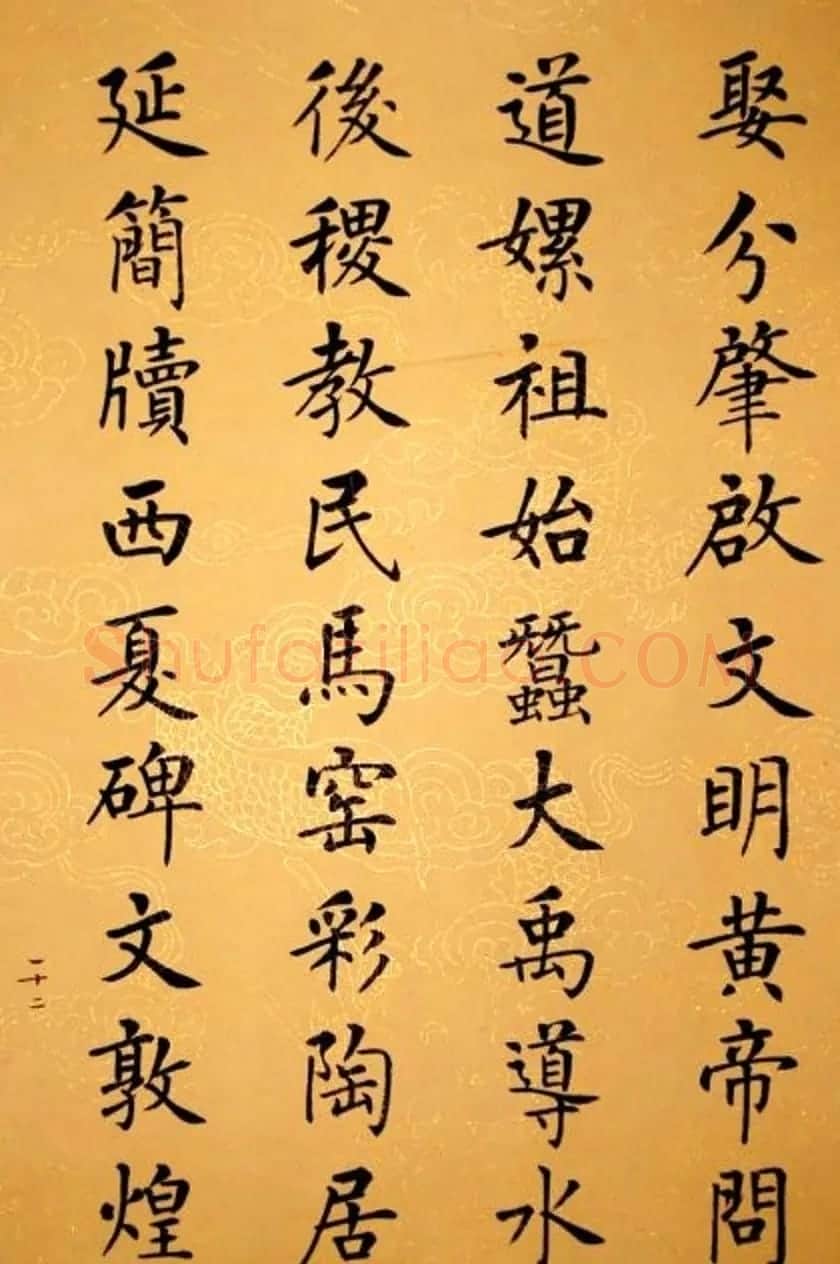 娶分肇啟文明黄帝問
道嫘祖始蠶大禹導水
後稷教民馬窑彩陶居
延簡牘西夏碑文敦煌
一十二
Shufaziliao.COM